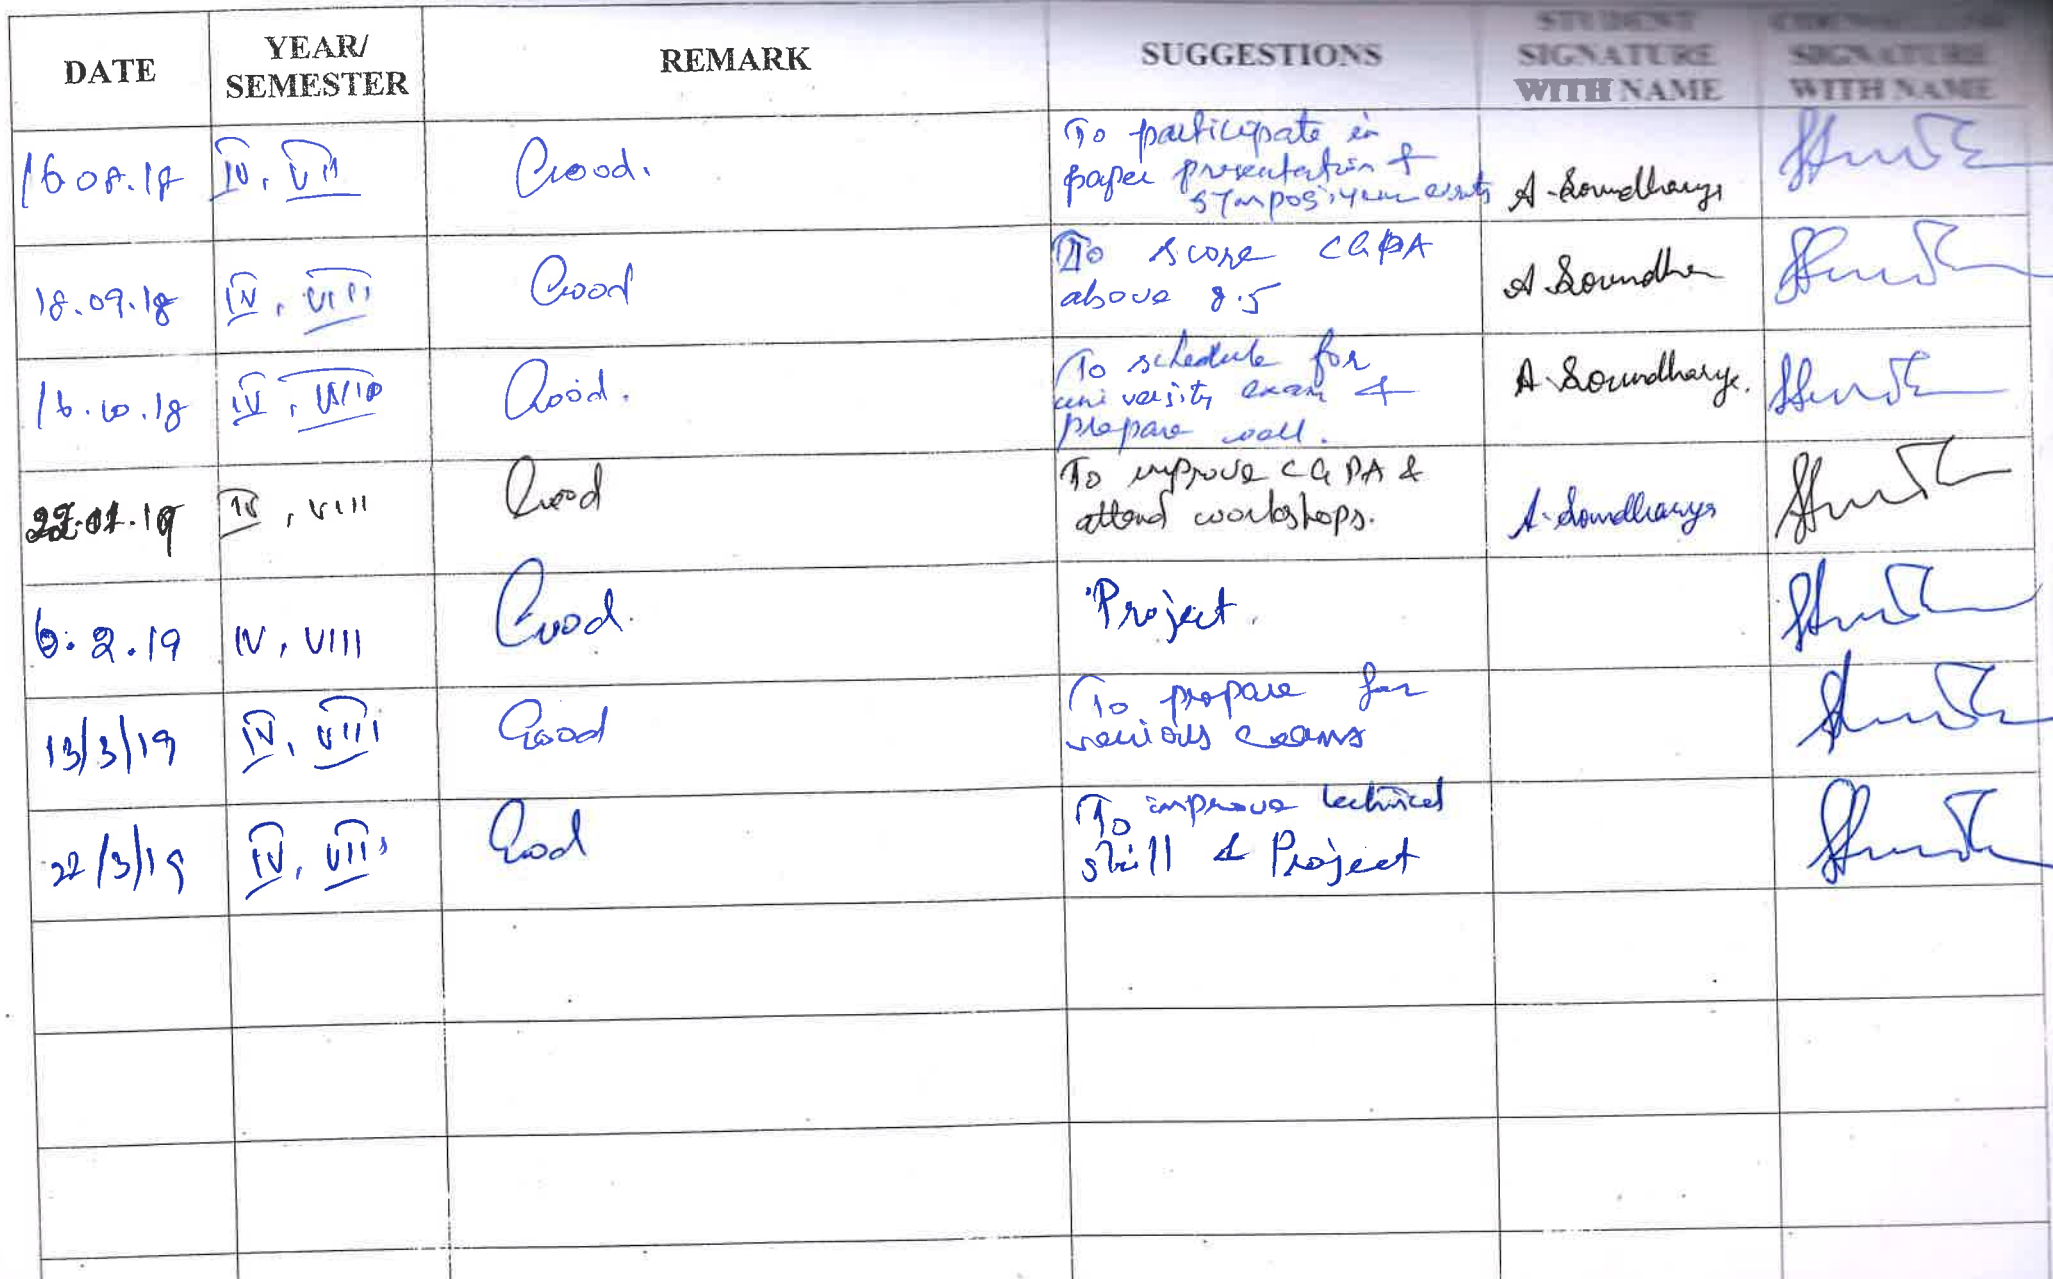 DATE
YEAR/
SEMESTER
REMARK
SUGGESTIONS
STUDENT
SIGNATURE
WITH NAME
SIGNATURE
WITH NAME
16.08.18
IV, VII
Good.
To participate in
paper presentation &
symposiyum events
A. Soundharya
18.09.18
IV, VIII
Good
To score CGPA
above 8.5
A. Soundhar
16.10.18
IV,
Good.
To schedule for
university exam &
prepare well.
A. Soundharya.
22.01.19
IV, VIII
Good
To improve CGPA &
attend workshops.
A. Soundharya
6.2.19
IV, VIII
Good.
Project.
13/3/19
IV, VIII
Good
To prepare for
various exams
22/3/19
IV, VIII
Good
To improve technical
skill & Project